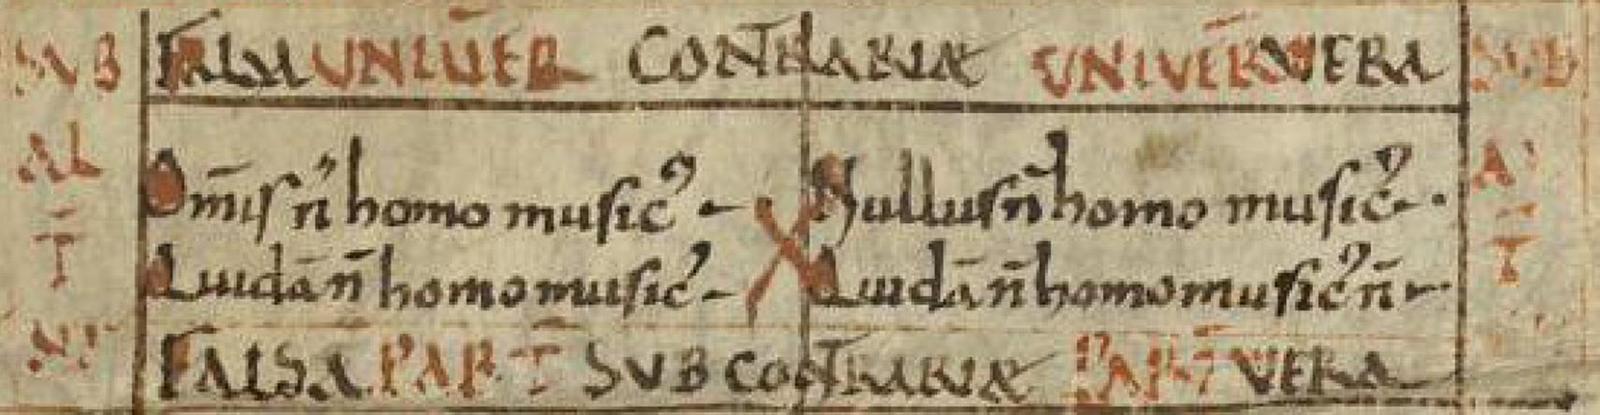 SUB FALSA UNIUĒR CONTRARIAE UNIVĒR VERA SUB
AL Om̄is n̄ homo musicꝰ Nullus n̄ homo musicꝰ A
T̄ Quidā n̄ homo musicꝰ X Quidā n̄ homo musicꝰ n̄ T̄
FALSA PART̄ SUBCONTRARIAE PART̄ VERA